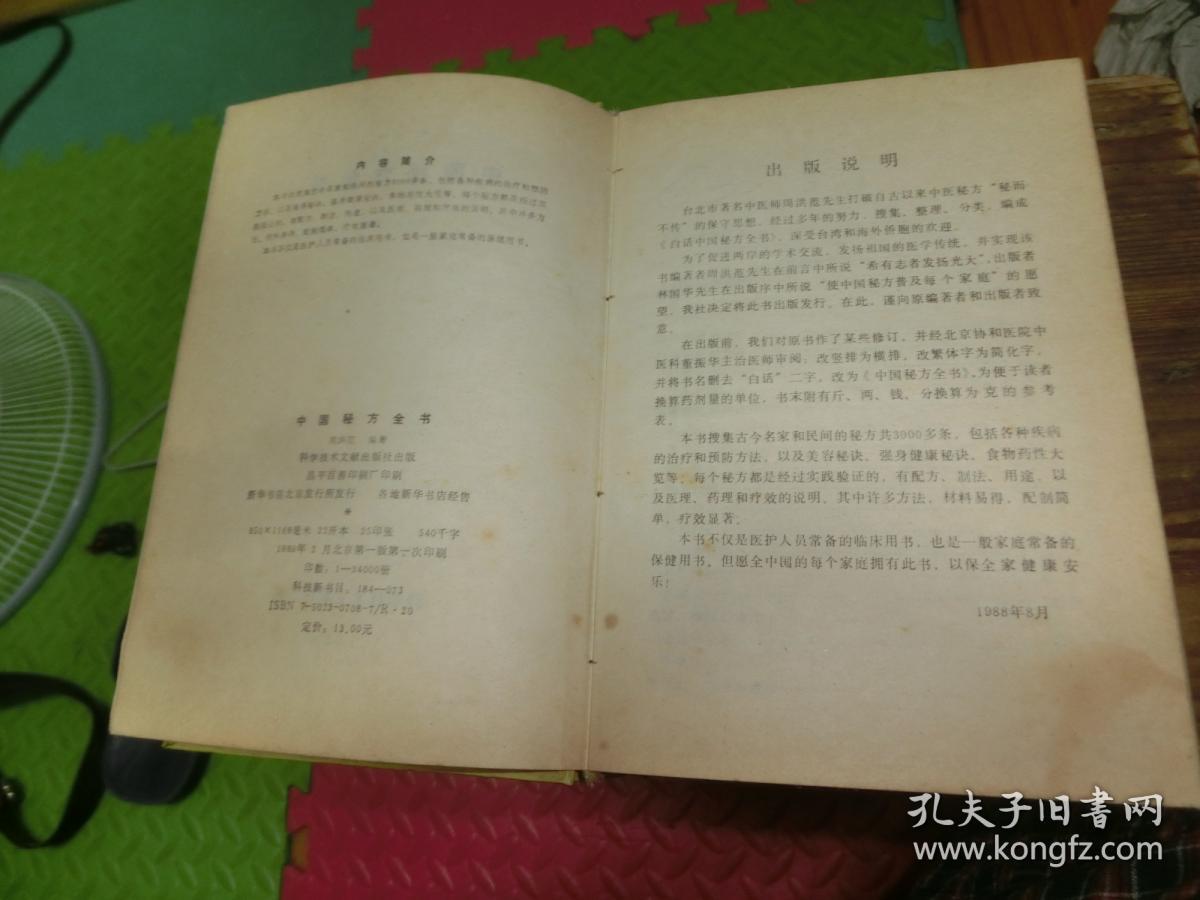 内容简介
本书不仅是医护人员常备的临床用书，也是一般家庭常备的保健用书。
中国秘方全书
周洪范 编著
科学技术文献出版社出版
昌平百善印刷厂印刷
新华书店北京发行所发行 各地新华书店经售
*
850×1168毫米 32开本 25印张 540千字
1989年2月北京第一版第一次印刷
印数：1—34000册
科技新书目：184—073
ISBN 7-5023-0708-7/R·20
定价：13.00元
出版说明
台北市著名中医师周洪范先生打破自古以来中医秘方“秘而
不传”的保守思想，经过多年的努力，搜集、整理、分类，编成
《白话中国秘方全书》，深受台湾和海外侨胞的欢迎。
为了促进两岸的学术交流，发扬祖国的医学传统，并实现该
书编著者周洪范先生在前言中所说“希有志者发扬光大”，出版者
林国华先生在出版序中所说“使中国秘方普及每个家庭”的愿
望，我社决定将此书出版发行。在此，谨向原编著者和出版者致
意。
在出版前，我们对原书作了某些修订，并经北京协和医院中
医科董振华主治医师审阅；改竖排为横排，改繁体字为简化字，
并将书名删去“白话”二字，改为《中国秘方全书》。为便于读者
换算药剂量的单位，书末附有斤、两、钱、分换算为克的参考
表。
本书搜集古今名家和民间的秘方共3000多条，包括各种疾病
的治疗和预防方法，以及美容秘诀、强身健康秘诀、食物药性大
览等；每个秘方都是经过实践验证的，有配方、制法、用途，以
及医理、药理和疗效的说明，其中许多方法，材料易得，配制简
单，疗效显著。
本书不仅是医护人员常备的临床用书，也是一般家庭常备的
保健用书。但愿全中国的每个家庭拥有此书，以保全家健康安
乐！
1988年8月
孔夫子旧书网
www.kongfz.com